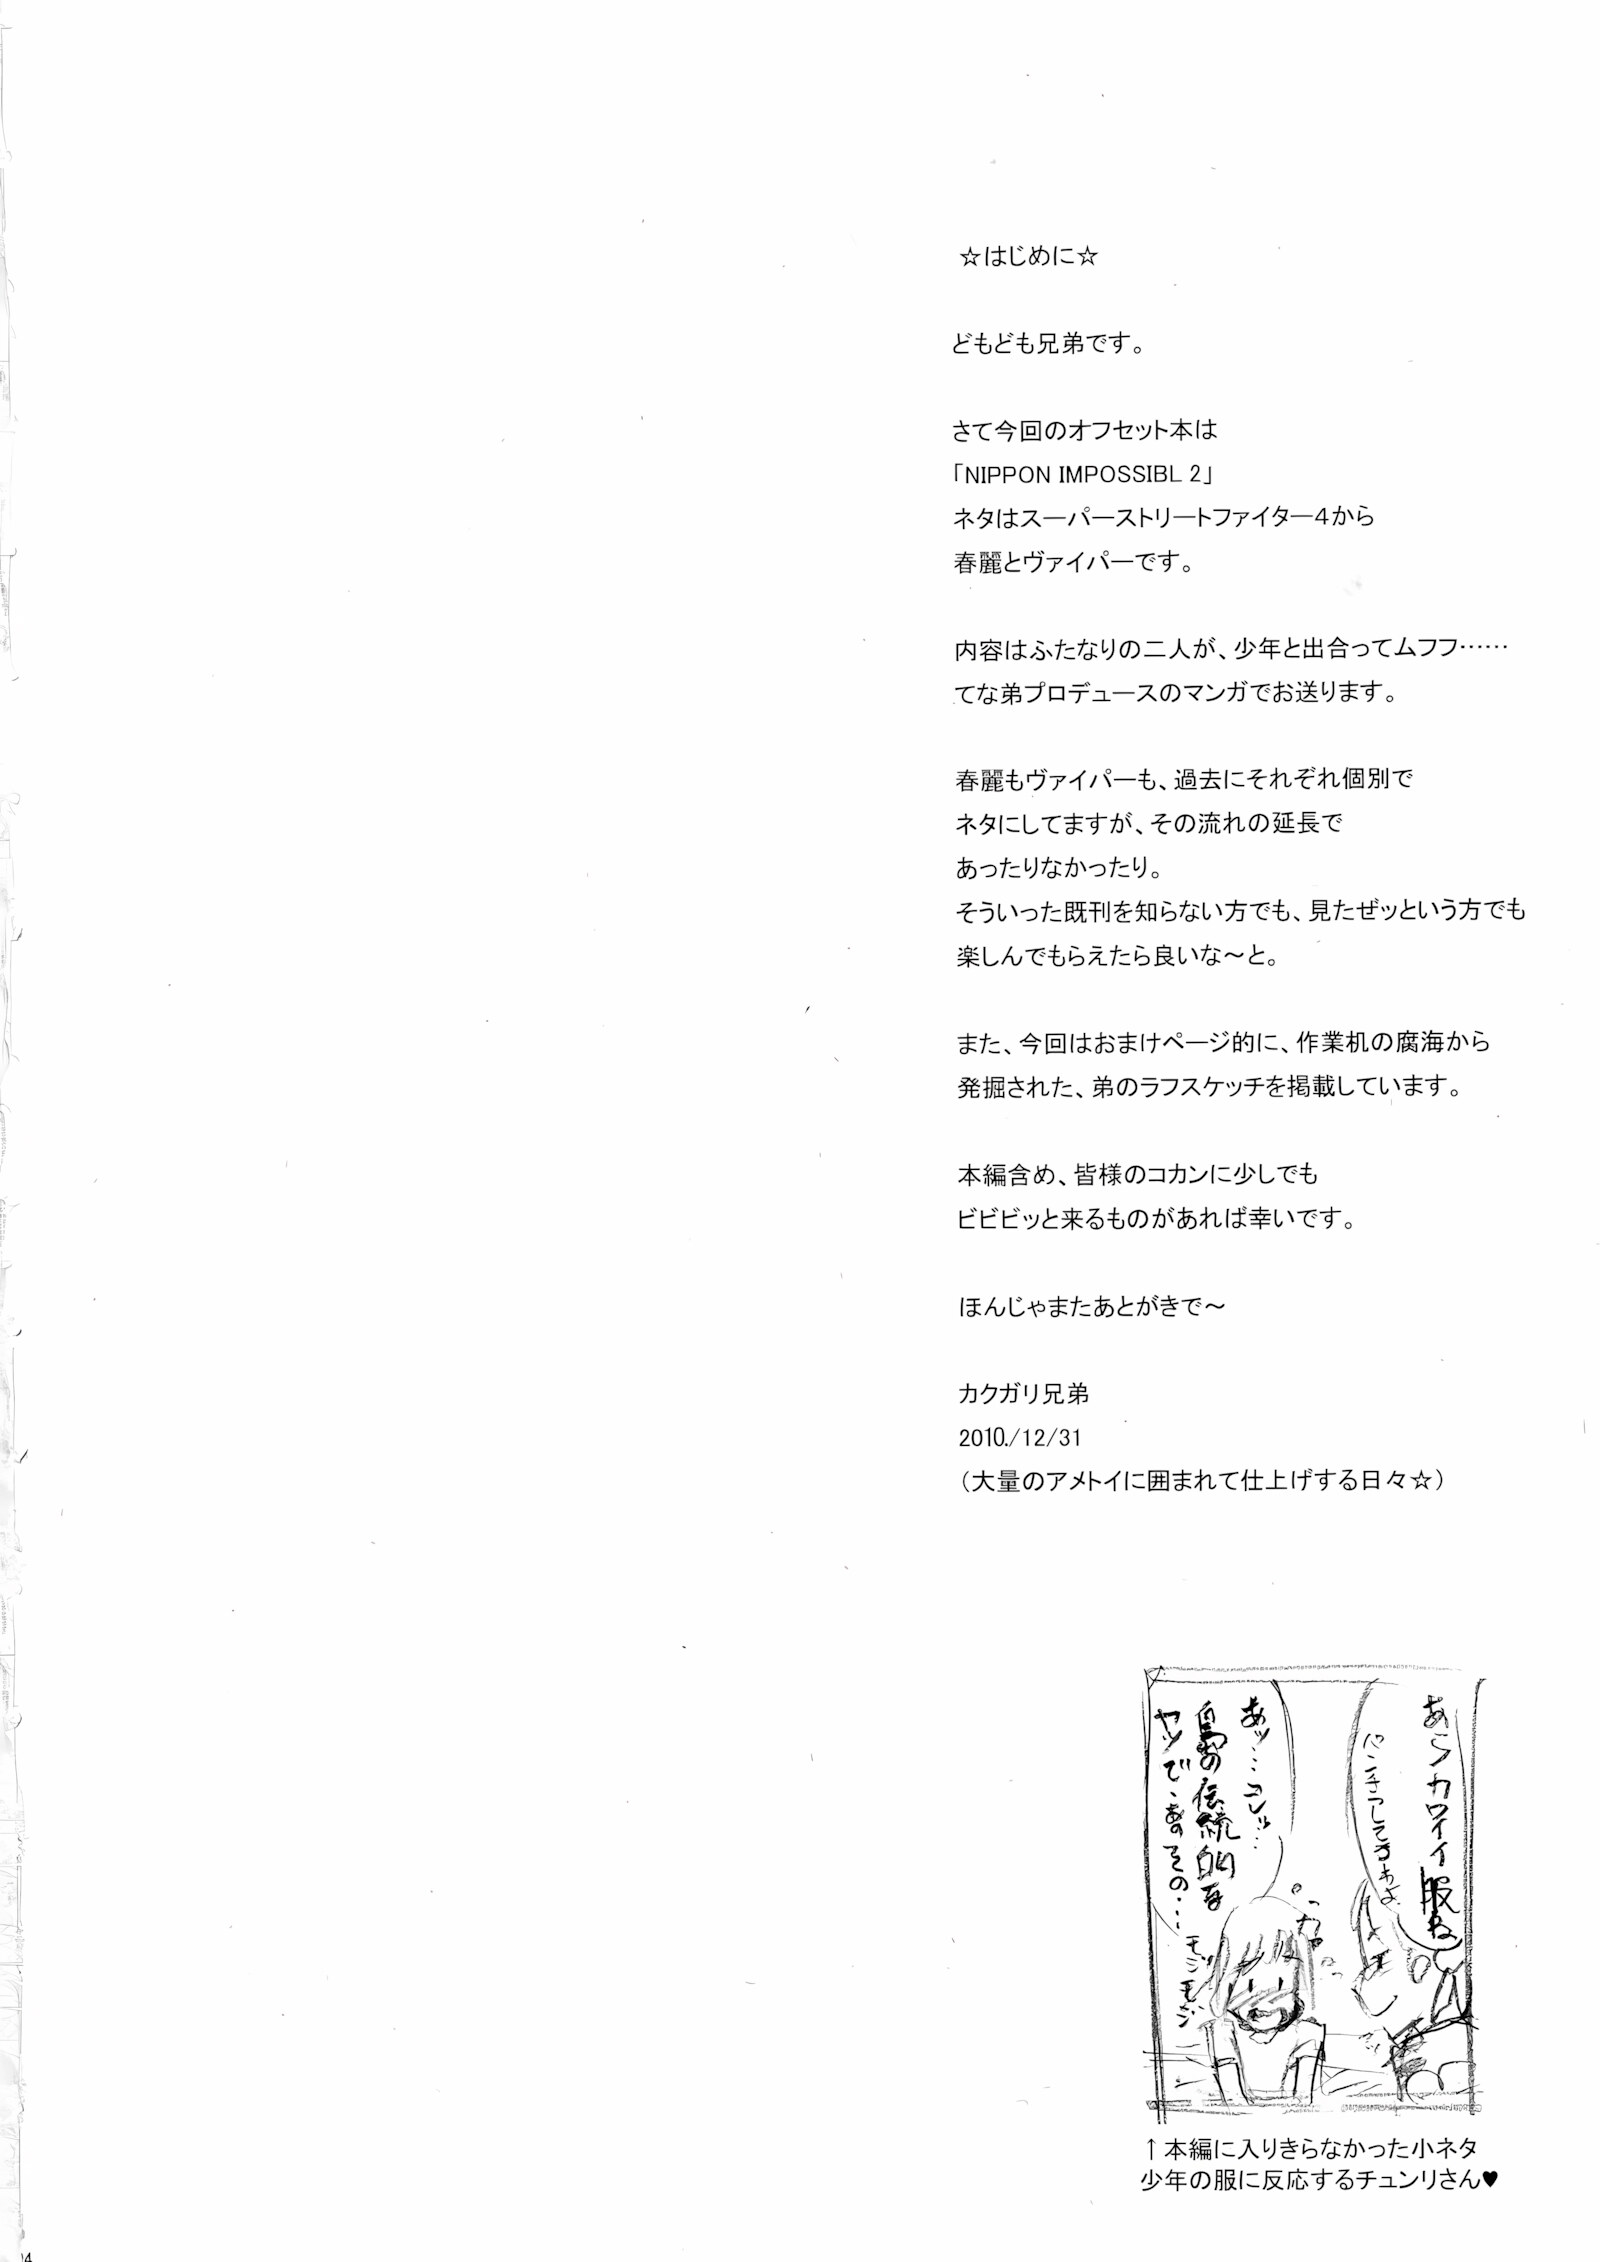 ☆はじめに☆
どもども兄弟です。
さて今回のオフセット本は
「NIPPON IMPOSSIBL 2」
ネタはスーパーストリートファイター4から
春麗とヴァイパーです。
内容はふたなりの二人が、少年と出合ってムフフ……
てな弟プロデュースのマンガでお送ります。
春麗もヴァイパーも、過去にそれぞれ個別で
ネタにしてますが、その流れの延長で
あったりなかったり。
そういった既刊を知らない方でも、見たぜッという方でも
楽しんでもらえたら良いな～と。
また、今回はおまけページ的に、作業机の腐海から
発掘された、弟のラフスケッチを掲載しています。
本編含め、皆様のコカンに少しでも
ビビビッと来るものがあれば幸いです。
ほんじゃまたあとがきで～
カクガリ兄弟
2010./12/31
（大量のアメトイに囲まれて仕上げする日々☆）
あらカワイイ服ね
あッ…コレッ…
島の伝統的な
ヤツで、あのその…
モジモジ
↑本編に入りきらなかった小ネタ
少年の服に反応するチュンリさん♥
04